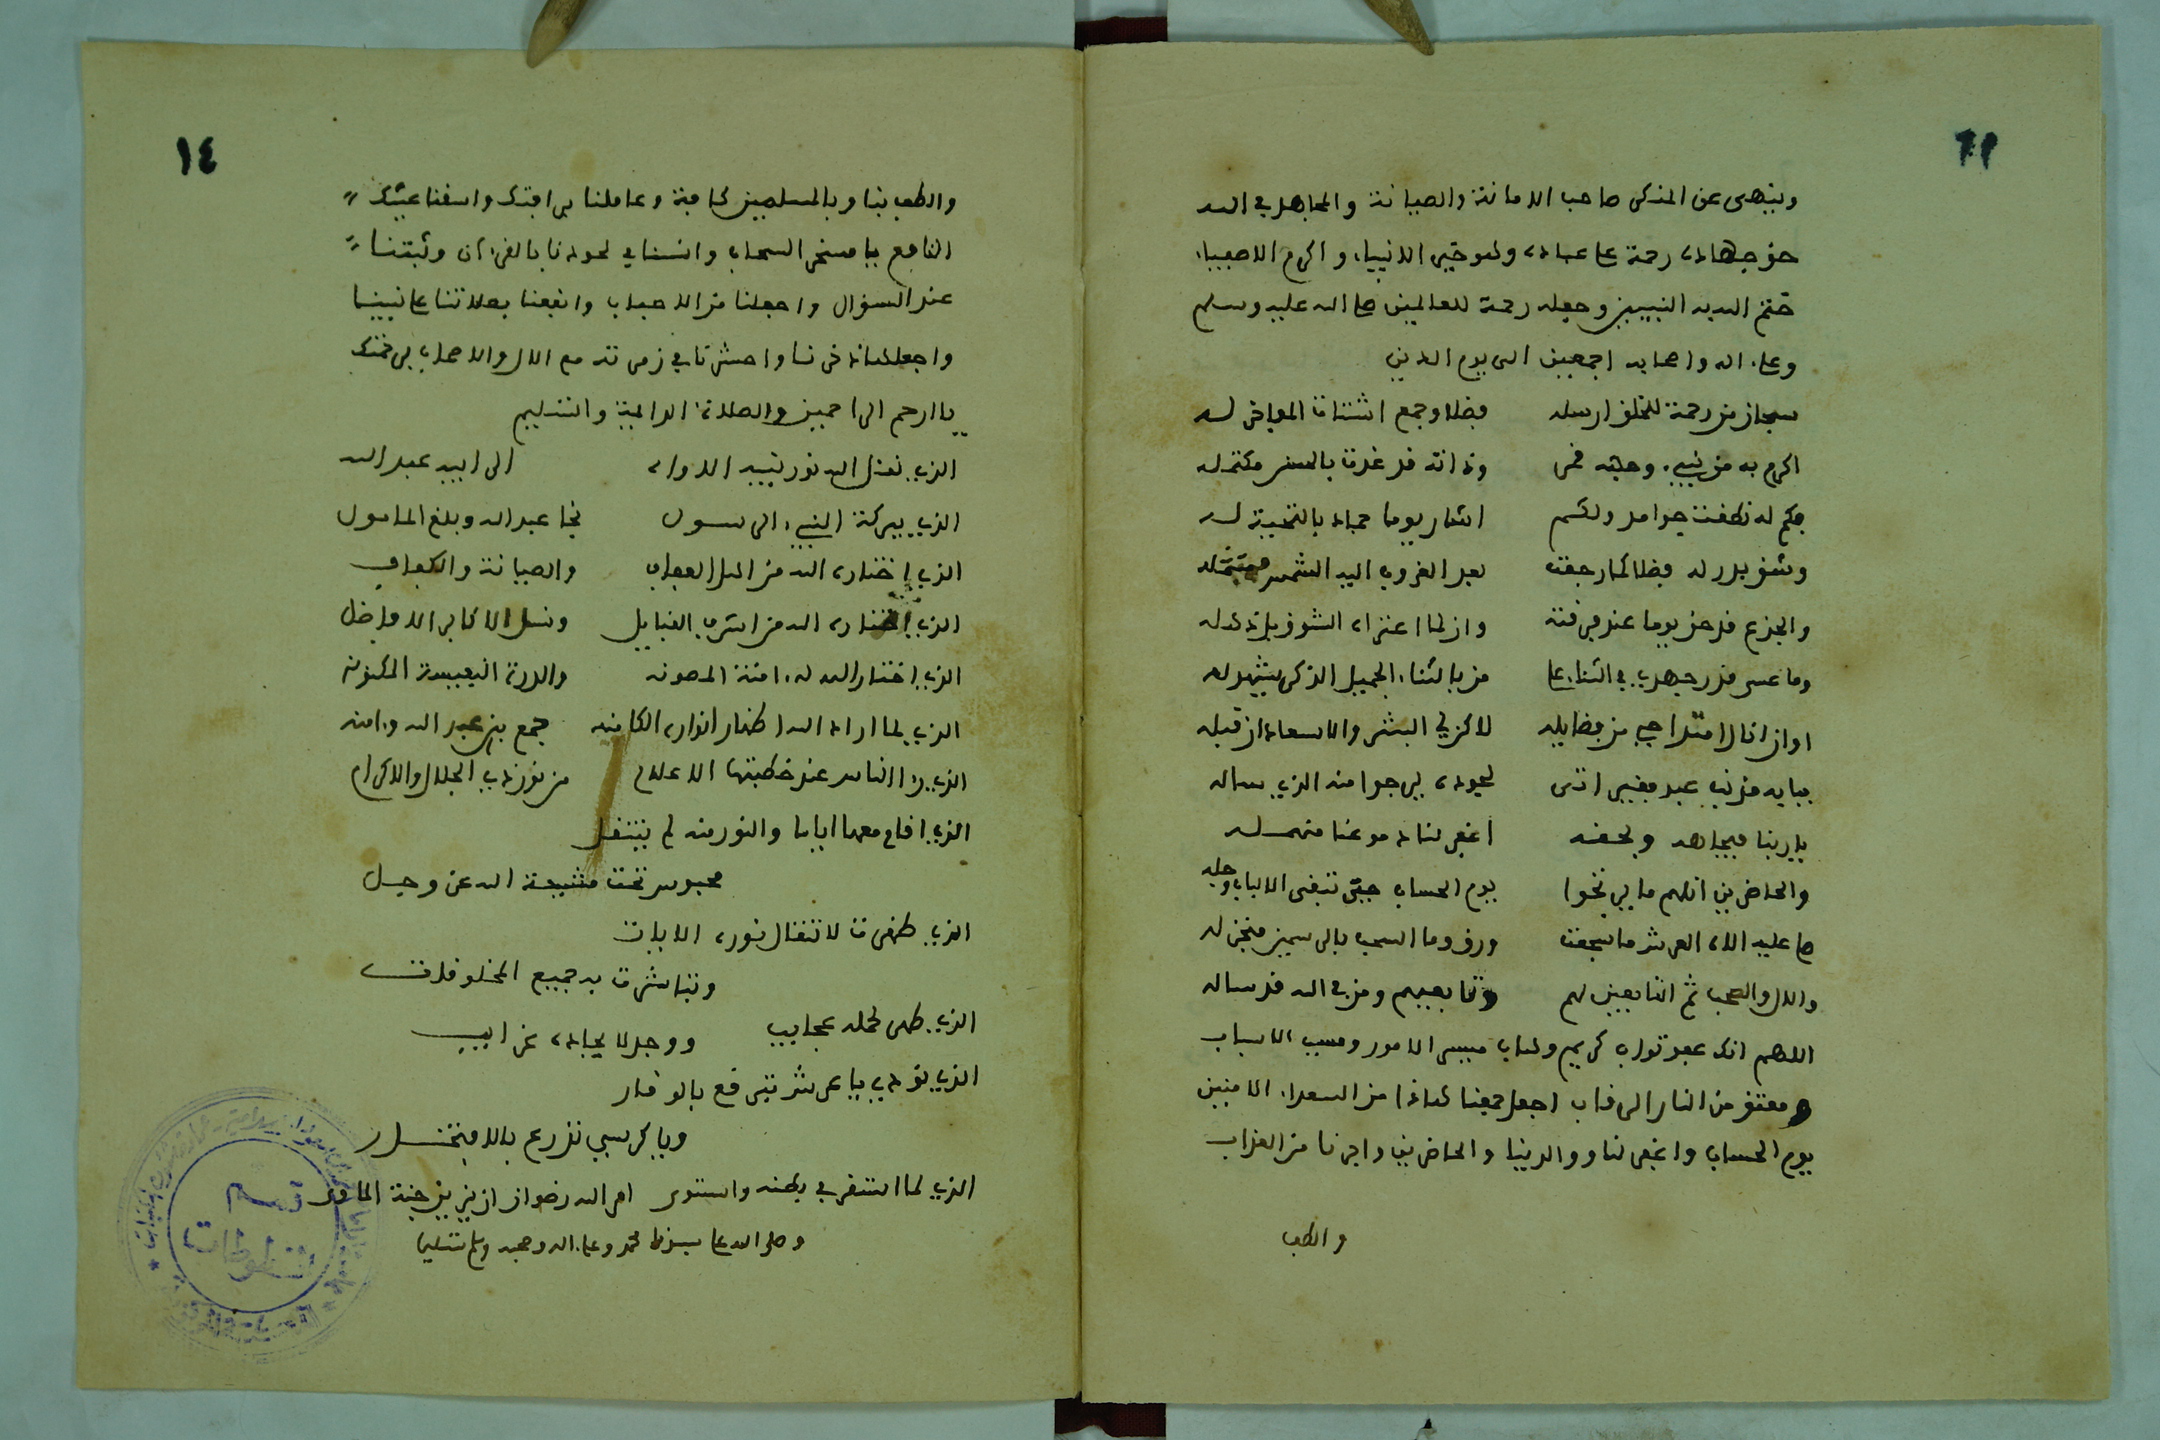 وينهى عن المنكر صاحب الامانة والصيانة والمجاهد في الله
حق جهاده رحمة على عباده وهو خير الانبياء واكرم الاصفياء
ختم الله به النبيين وجعله رحمة للعالمين صلى الله عليه وسلم
وعلى اله واصحابه اجمعين الى يوم الدين
سبحان من رحمة للخلق ارسله فضلا وجمع اشتات المفاخر له
اكرم به من نبي وذاته قد غدت بالحسن مكتمله
فكم له نطقت جوامد ولكم اشار يوما جماد بالتحية له
وشق بدر له فضلا كما رجعت بعد الغروب اليه الشمس ممتثله
والجزع قد حن يوما عند فرقته
وما عسى قدر جهدي في الثناء على من بالثناء الجميل الذكر يشهد له
لا كن لي البشر والاسعاد ان قبله
ببابه مذنب عبد فقير اتى لجوده يرجوا منه الذي ساله
يا ربنا فبجاهه وبحقه اغفر لنا
والحاضرين انلهم ما يرتجوا يوم الحساب
صلى عليه الاه العرش ما سجعت ورق وما السحب بالى
والال والصحب ثم التابعين لهم وتابعيهم ومن في الله قد ساله
اللهم انك عفو تواب كريم وهاب ميسر الامور ومسبب الاسباب
ومعتق من النار الرقاب اجعل جمعنا هذا من السعداء الامنين
يوم الحساب واغفر لنا ووالدينا والحاضرين واجرنا من العذاب
والطف
١٤
والطف بنا وبالمسلمين كافة وعاملنا برافتك واسقنا غيثك
النافع يا مسخر السحاب وانسنا في لحودنا بالقران وثبتنا
عند السؤال واجعلنا من الاحباب وانفعنا بصلاتنا على نبينا
واجعلها ذخرنا واحشرنا في زمرته مع الال والاصحاب برحمتك
يا ارحم الراحمين والصلاة الدائمة والتسليم
الذي نقل الله نور نبيه الاواه الى ابيه عبد الله
الذي ببركة النبي الرسول نجا عبد الله وبلغ المامول
الذي اختاره الله من اهل العفاف والصيانة والكفاف
الذي اختاره الله من اشرف القبايل ونسل الاكابر الافاضل
الذي اختار الله له امنة المصونه والدرة النفيسة المكنونه
الذي لما اراد الله اظهار انواره الكامنه جمع بين عبد الله وامنه
الذي الناس عند خطبتها الاعلام من نور ذي الجلال والاكرام
الذي اقام معها اياما والنور منه لم ينتقل
محبوس تحت مشيحة الله عز وجل
الذي ظهرت لانتقال نوره الايات
وتباشرت به جميع المخلوقات
الذي ظهر لحمله عجايب
ووجد لايجاده غرايب
الذي نودي يا عرش تبرقع بالوقار
ويا كرسي تدرع بالافتخار
الذي لما استقر في بطنه واستوى امر الله رضوان ان يزين جنة الماوى
وصلى الله على سيدنا محمد وعلى اله وصحبه وسلم تسليما
قسم